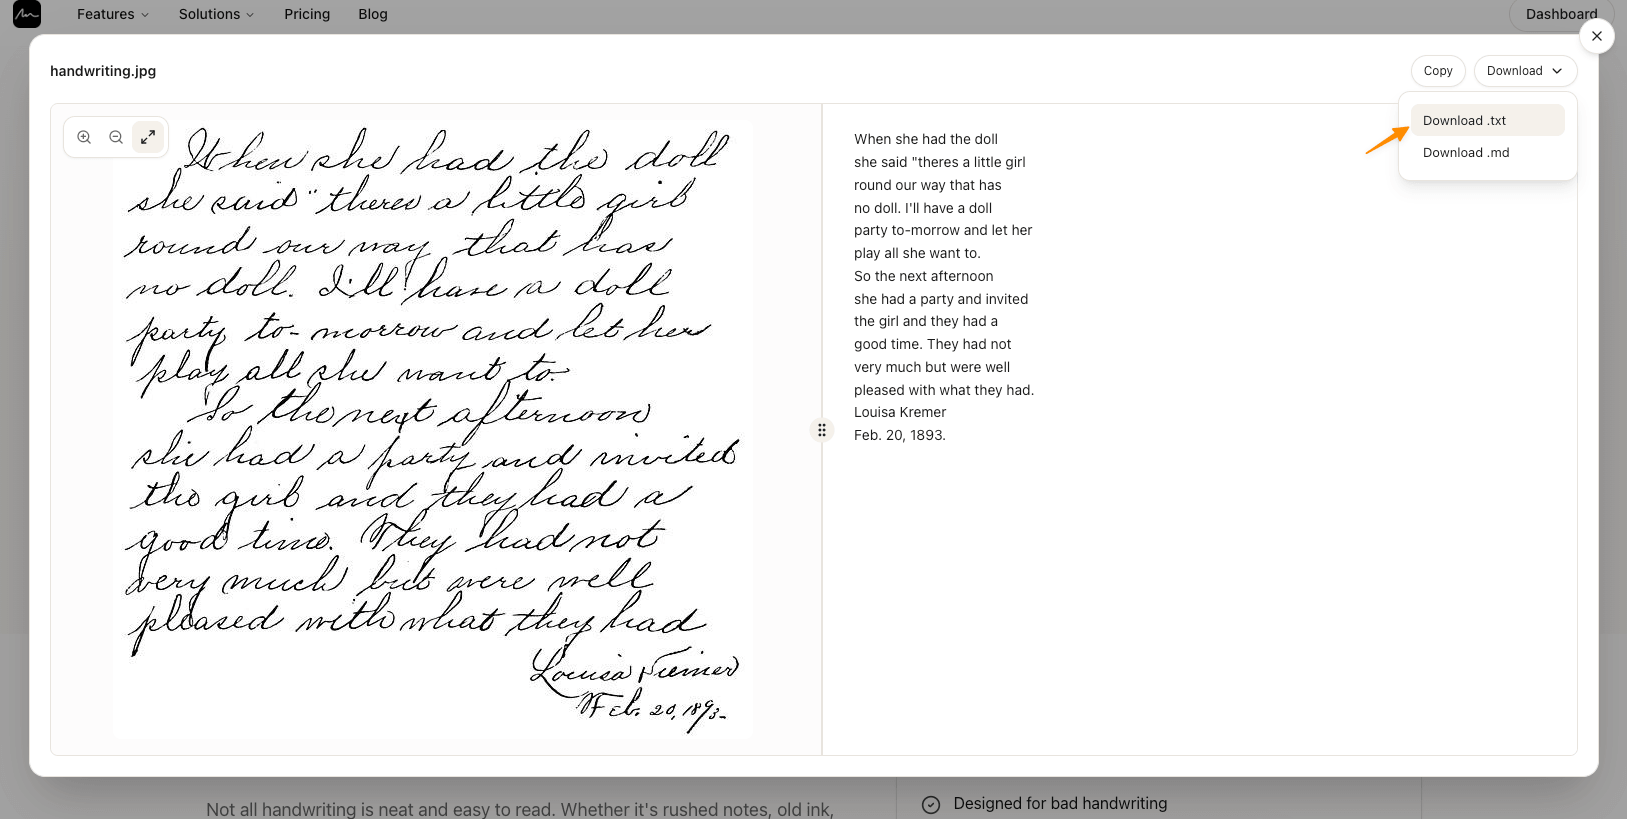 Features
Solutions
Pricing
Blog
Dashboard
handwriting.jpg
Copy
Download
Download .txt
Download .md
When she had the doll
she said "theres a little girl
round our way that has
no doll. I'll have a doll
party to-morrow and let her
play all she want to.
So the next afternoon
she had a party and invited
the girl and they had a
good time. They had not
very much but were well
pleased with what they had
Louisa
Feb. 20, 1893.
When she had the doll
she said "theres a little girl
round our way that has
no doll. I'll have a doll
party to-morrow and let her
play all she want to.
So the next afternoon
she had a party and invited
the girl and they had a
good time. They had not
very much but were well
pleased with what they had.
Louisa Kremer
Feb. 20, 1893.
Not all handwriting is neat and easy to read. Whether it's rushed notes, old ink,
Designed for bad handwriting